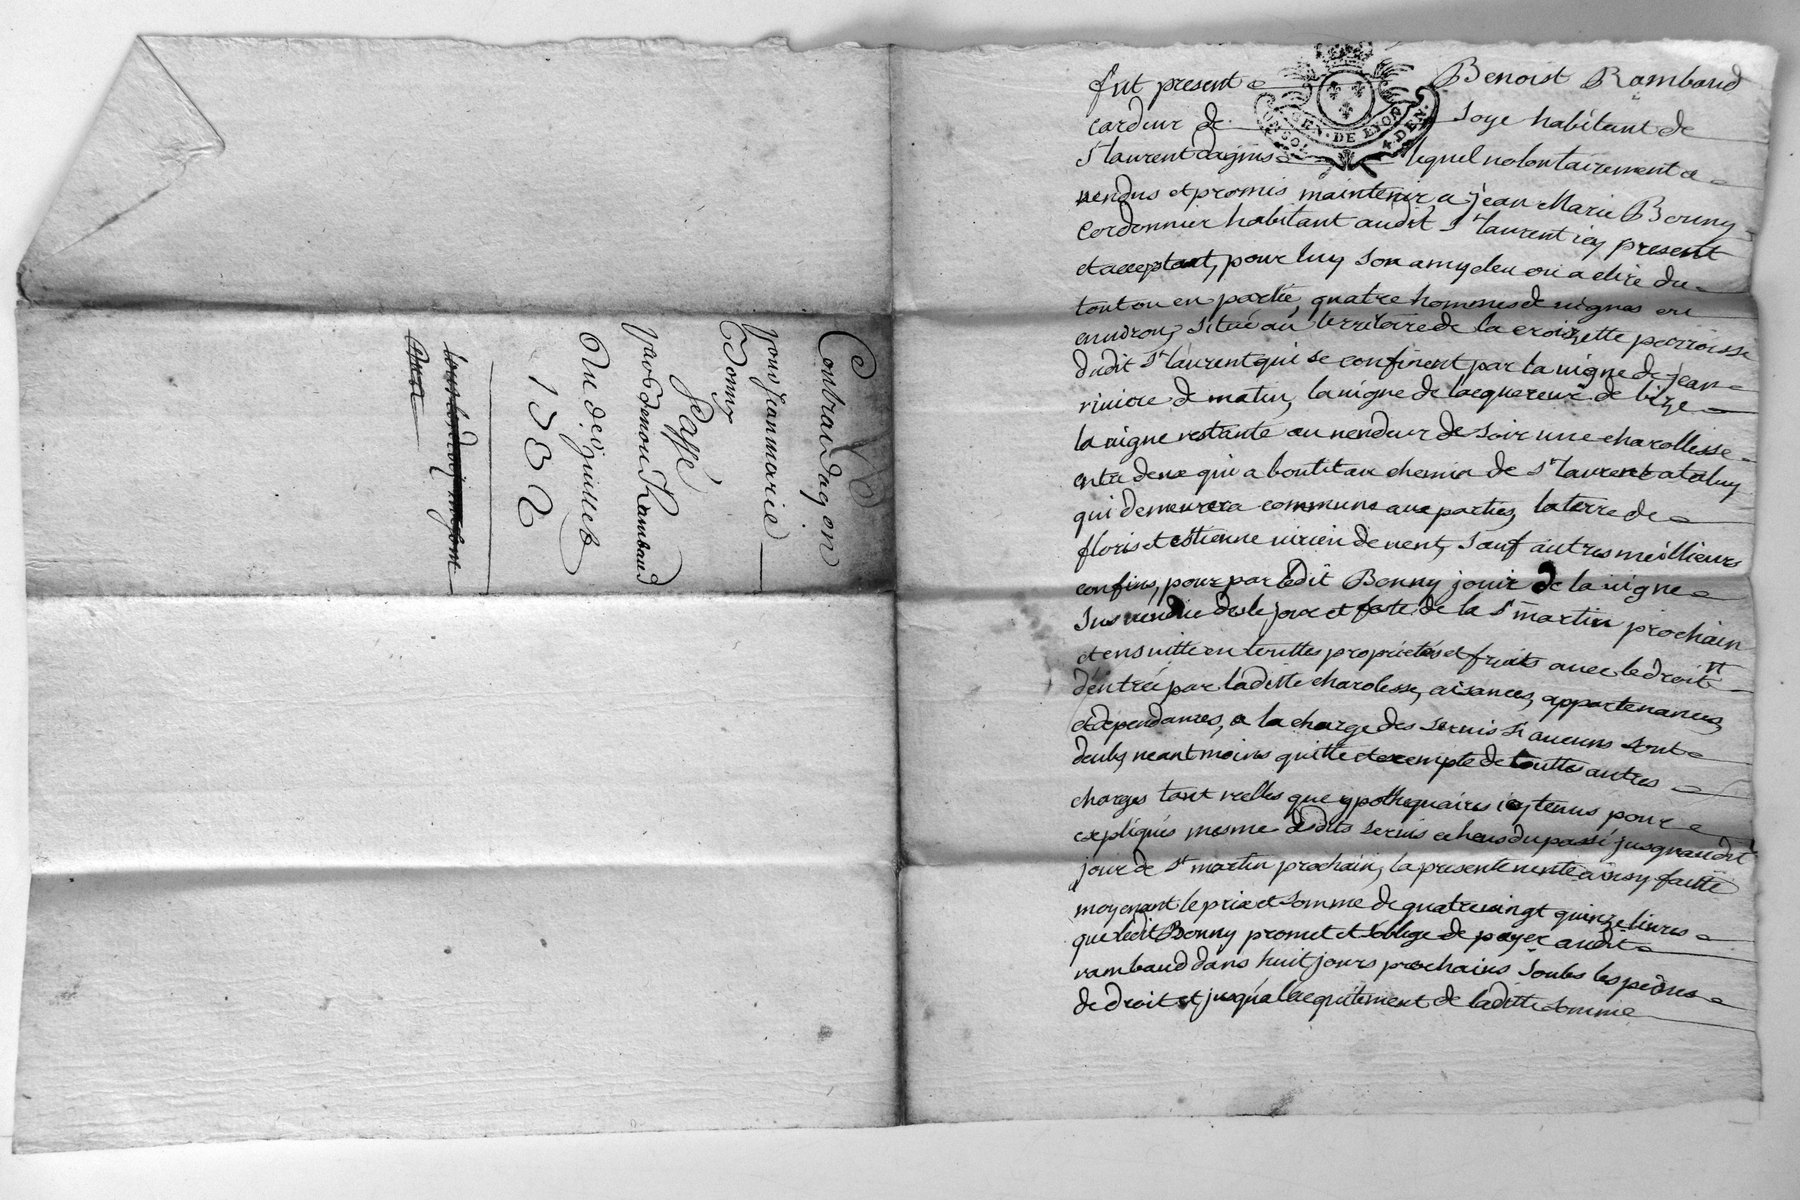 Benoist Rambaud
fut present
GEN · DE LYON
UN SOL 4 DEN.
cardeur de soye habitant de
St laurent dagnis lequel volontairement a
vendus et promis maintenir a jean Marie Bonny
Cordonnier habitant audit St laurent icy present
et acceptant, pour luy son amy eleu ou a elire du
tout ou en partie, quatre hommes de vignes ou
environ, situé au territoire de la croizette parroisse
dudit St laurent qui se confinent par la vigne de jean
riviere de matin, la vigne de lacquereur de bize
la vigne restante au vendeur de soir une charollesse
entre deux qui aboutit au chemin de St laurent a taluy
qui demeurera commune aux parties, la terre de
floris et estienne de vent, sauf autres meillieurs
confins, pour par ledit Bonny jouir de la vigne
sus vendue des le jour et feste de la St martin prochain
et ensuitte en touttes proprietés et fruits avec le droit
dentrée par laditte charolesse, aisances, appartenances,
et dependances, a la charge des servis si aucuns sont
deubs, neantmoins quitte et exempte de touttes autres
charges tant reelles que ypothequaires icy tenus pour
expliqués mesme desdits servis echeus du passé jusquaudit
jour de St martin prochain, la presente vente ainsy faitte
moyenant le prix et somme de quatrevingt quinze livres
que ledit Bonny promet et soblige de payer audit
rambaud dans huit jours prochains soubs les peines
de droit et jusqua lacquitement de laditte somme
pour jean marie
Bonny
Passé
par benoit Rambaud
Du 29 juillet
1732